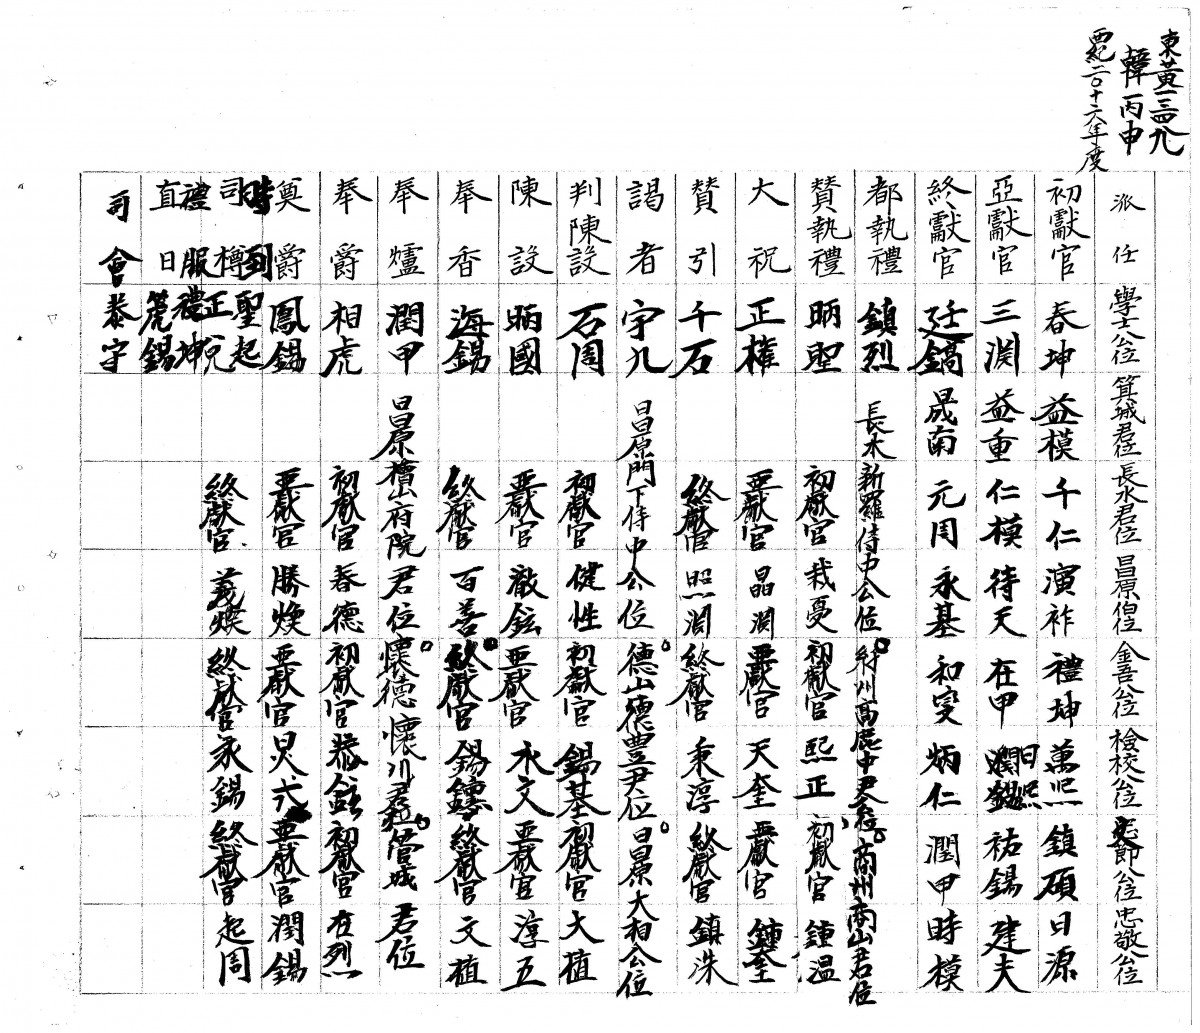 東黃一三四九
韓丙申
西紀二〇十六年度
派任 學士公位 箕城君位 長水君位 昌原伯位 金吾公位 檢校公位 忠節公位 忠敬公位
初獻官 春坤 益模 千仁 演祚 禮坤 萬熙 鎮碩 日源
亞獻官 三渕 益重 仁模 待天 在甲 潤錫 日熙 祐錫 建夫
終獻官 廷鎬 晟南 元周 永基 和燮 炳仁 潤甲 時模
都執禮 鎮烈 長水 新羅侍中公位 中尹位 商州商山君位
贊執禮 昞聖 初獻官 栽憂 初獻官 熙正 初獻官 鍾温
大祝 正權 亞獻官 晶渕 亞獻官 天奎 亞獻官 鍾奎
贊引 千石 終獻官 照渕 終獻官 秉淳 終獻官 鎮洙
謁者 宇九 昌原門下侍中公位 德山德豊尹位 昌原大相公位
判陳設 石周 初獻官 健性 初獻官 錫基 初獻官 大植
陳設 昞國 亞獻官 敵鉉 亞獻官 永文 亞獻官 淳五
奉香 海錫 終獻官 百善 終獻官 錫鑄 終獻官 文植
奉爐 潤甲 昌原檜山府院君位 懷德懷川君位 管城君位
奉爵 相虎 初獻官 春德 初獻官 恭鉉 初獻官 在烈
奠爵 鳳錫 亞獻官 勝煥 亞獻官 炅六 亞獻官 潤錫
時到 聖起
司樽 正兌 終獻官 義煥 終獻官 承錫 終獻官 起周
禮服 禮坤
直日 篪錫
司會 泰宇